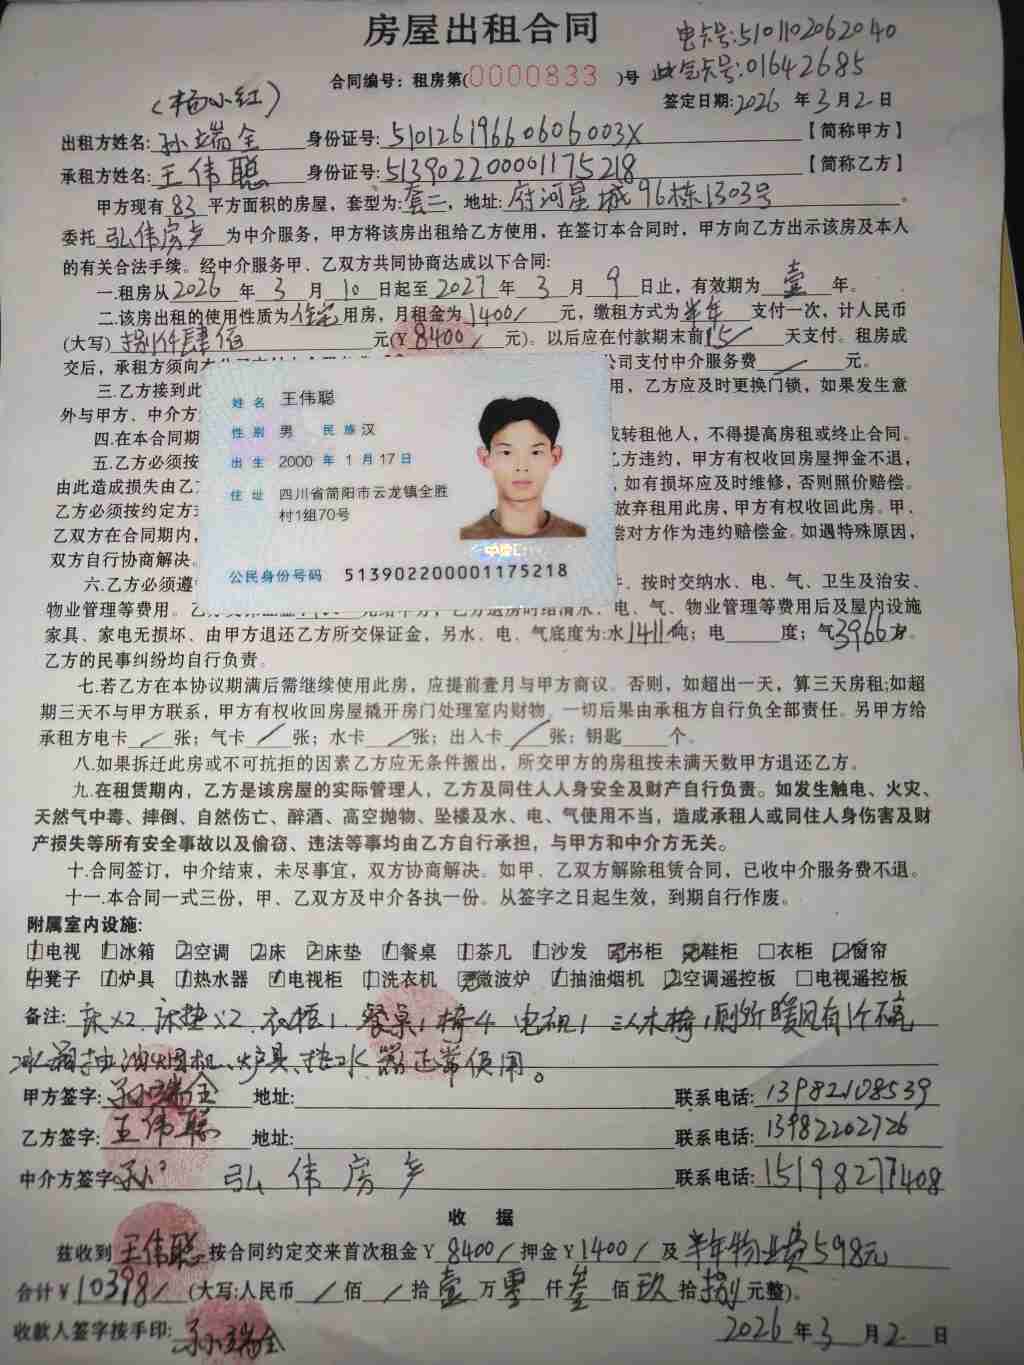 房屋出租合同
电卡号:5101102062040
合同编号：租房第(0000833)号 此气卡号:01642685
(杨小红) 签定日期:2026年3月2日
出租方姓名:孙瑞全 身份证号:51012619660606003X【简称甲方】
承租方姓名:王伟聪 身份证号:513902200001175218【简称乙方】
甲方现有83平方面积的房屋，套型为:套二，地址:府河星城96栋1303号。
委托弘伟房产为中介服务，甲方将该房出租给乙方使用，在签订本合同时，甲方向乙方出示该房及本人
的有关合法手续。经中介服务甲、乙双方共同协商达成以下合同:
一.租房从2026年3月10日起至2027年3月9日止，有效期为壹年。
二.该房出租的使用性质为住宅用房，月租金为1400/元，缴租方式为半年支付一次，计人民币
(大写)捌仟肆佰元(￥8400/元)。以后应在付款期末前15天支付。租房成
交后，承租方须向 公司支付中介服务费/元。
三.乙方接到此 用，乙方应及时更换门锁，如果发生意
外与甲方、中介方
四.在本合同期 或转租他人，不得提高房租或终止合同。
五.乙方必须按 乙方违约，甲方有权收回房屋押金不退，
由此造成损失由乙 如有损坏应及时维修，否则照价赔偿。
乙方必须按约定方 放弃租用此房，甲方有权收回此房。甲、
乙双方在合同期内， 偿对方作为违约赔偿金。如遇特殊原因，
双方自行协商解决。
姓名 王伟聪
性别 男 民族 汉
出生 2000年1月17日
住址 四川省简阳市云龙镇全胜
村1组70号
公民身份号码 513902200001175218
六.乙方必须遵 按时交纳水、电、气、卫生及治安、
物业管理等费用。 电、气、物业管理等费用后及屋内设施
家具、家电无损坏、由甲方退还乙方所交保证金，另水、电、气底度为:水1411吨；电 度；气3966方。
乙方的民事纠纷均自行负责。
七.若乙方在本协议期满后需继续使用此房，应提前壹月与甲方商议。否则，如超出一天，算三天房租;如超
期三天不与甲方联系，甲方有权收回房屋撬开房门处理室内财物，一切后果由承租方自行负全部责任。另甲方给
承租方电卡/张；气卡/张；水卡/张；出入卡/张；钥匙 个。
八.如果拆迁此房或不可抗拒的因素乙方应无条件搬出，所交甲方的房租按未满天数甲方退还乙方。
九.在租赁期内，乙方是该房屋的实际管理人，乙方及同住人人身安全及财产自行负责。如发生触电、火灾、
天然气中毒、摔倒、自然伤亡、醉酒、高空抛物、坠楼及水、电、气使用不当，造成承租人或同住人身伤害及财
产损失等所有安全事故以及偷窃、违法等事均由乙方自行承担，与甲方和中介方无关。
十.合同签订，中介结束，未尽事宜，双方协商解决。如甲、乙双方解除租赁合同，已收中介服务费不退。
十一.本合同一式三份，甲、乙双方及中介各执一份。从签字之日起生效，到期自行作废。
附属室内设施:
1电视 1冰箱 2空调 2床 2床垫 1餐桌 1茶几 1沙发 书柜 鞋柜 □衣柜 □窗帘
4凳子 1炉具 1热水器 1电视柜 1洗衣机 微波炉 1抽油烟机 2空调遥控板 □电视遥控板
备注:床x2.床垫x2.衣柜1.餐桌1椅4 电视1 三人木椅1厕所暖风有1个不亮
冰箱抽油烟机、炉具、热水器正常使用。
甲方签字:孙瑞全 地址: 联系电话:13982108539
乙方签字:王伟聪 地址: 联系电话:13982202726
中介方签字孙 弘伟房产 联系电话:15198277408
收据
兹收到王伟聪按合同约定交来首次租金￥8400/押金￥1400/及半年物业费598元
合计￥10398/(大写:人民币/佰/拾壹万零仟叁佰玖拾捌元整)。
收款人签字按手印:孙瑞全 2026年3月2日